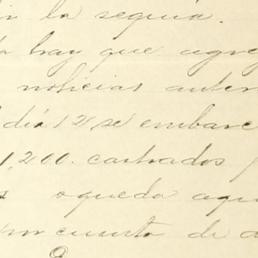 la sequía.
hay que agre
noticias anter
día 12 se embarc
1,200. castrados
queda aqu
un cuanto de a